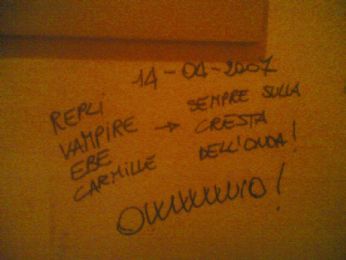 14-04-2007
REPLI
VAMPIRE
EBE
CARMILLE
→ SEMPRE SULLA
CRESTA
DELL'ONDA!